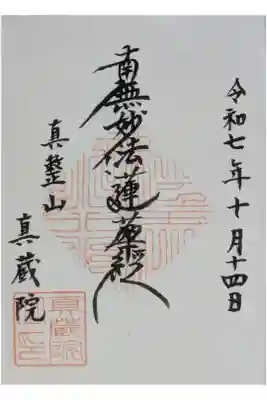 令和七年十月十四日
南無妙法蓮華経
真整山
真蔵院
真蔵院